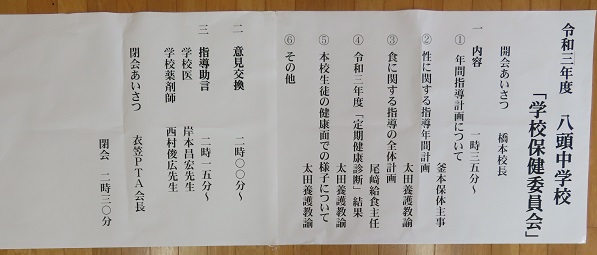 令和三年度　八頭中学校
「学校保健委員会」
開会あいさつ　橋本校長
一　内容　一時三五分～
①　年間指導計画について
釜本保体主事
②　性に関する指導年間計画
太田養護教諭
③　食に関する指導の全体計画
尾﨑給食主任
④　令和三年度「定期健康診断」結果
太田養護教諭
⑤　本校生徒の健康面での様子について
太田養護教諭
⑥　その他
二　意見交換　二時〇〇分～
三　指導助言　二時一五分～
学校医　岸本昌宏先生
学校薬剤師　西村俊広先生
閉会あいさつ　衣笠ＰＴＡ会長
閉会　二時三〇分